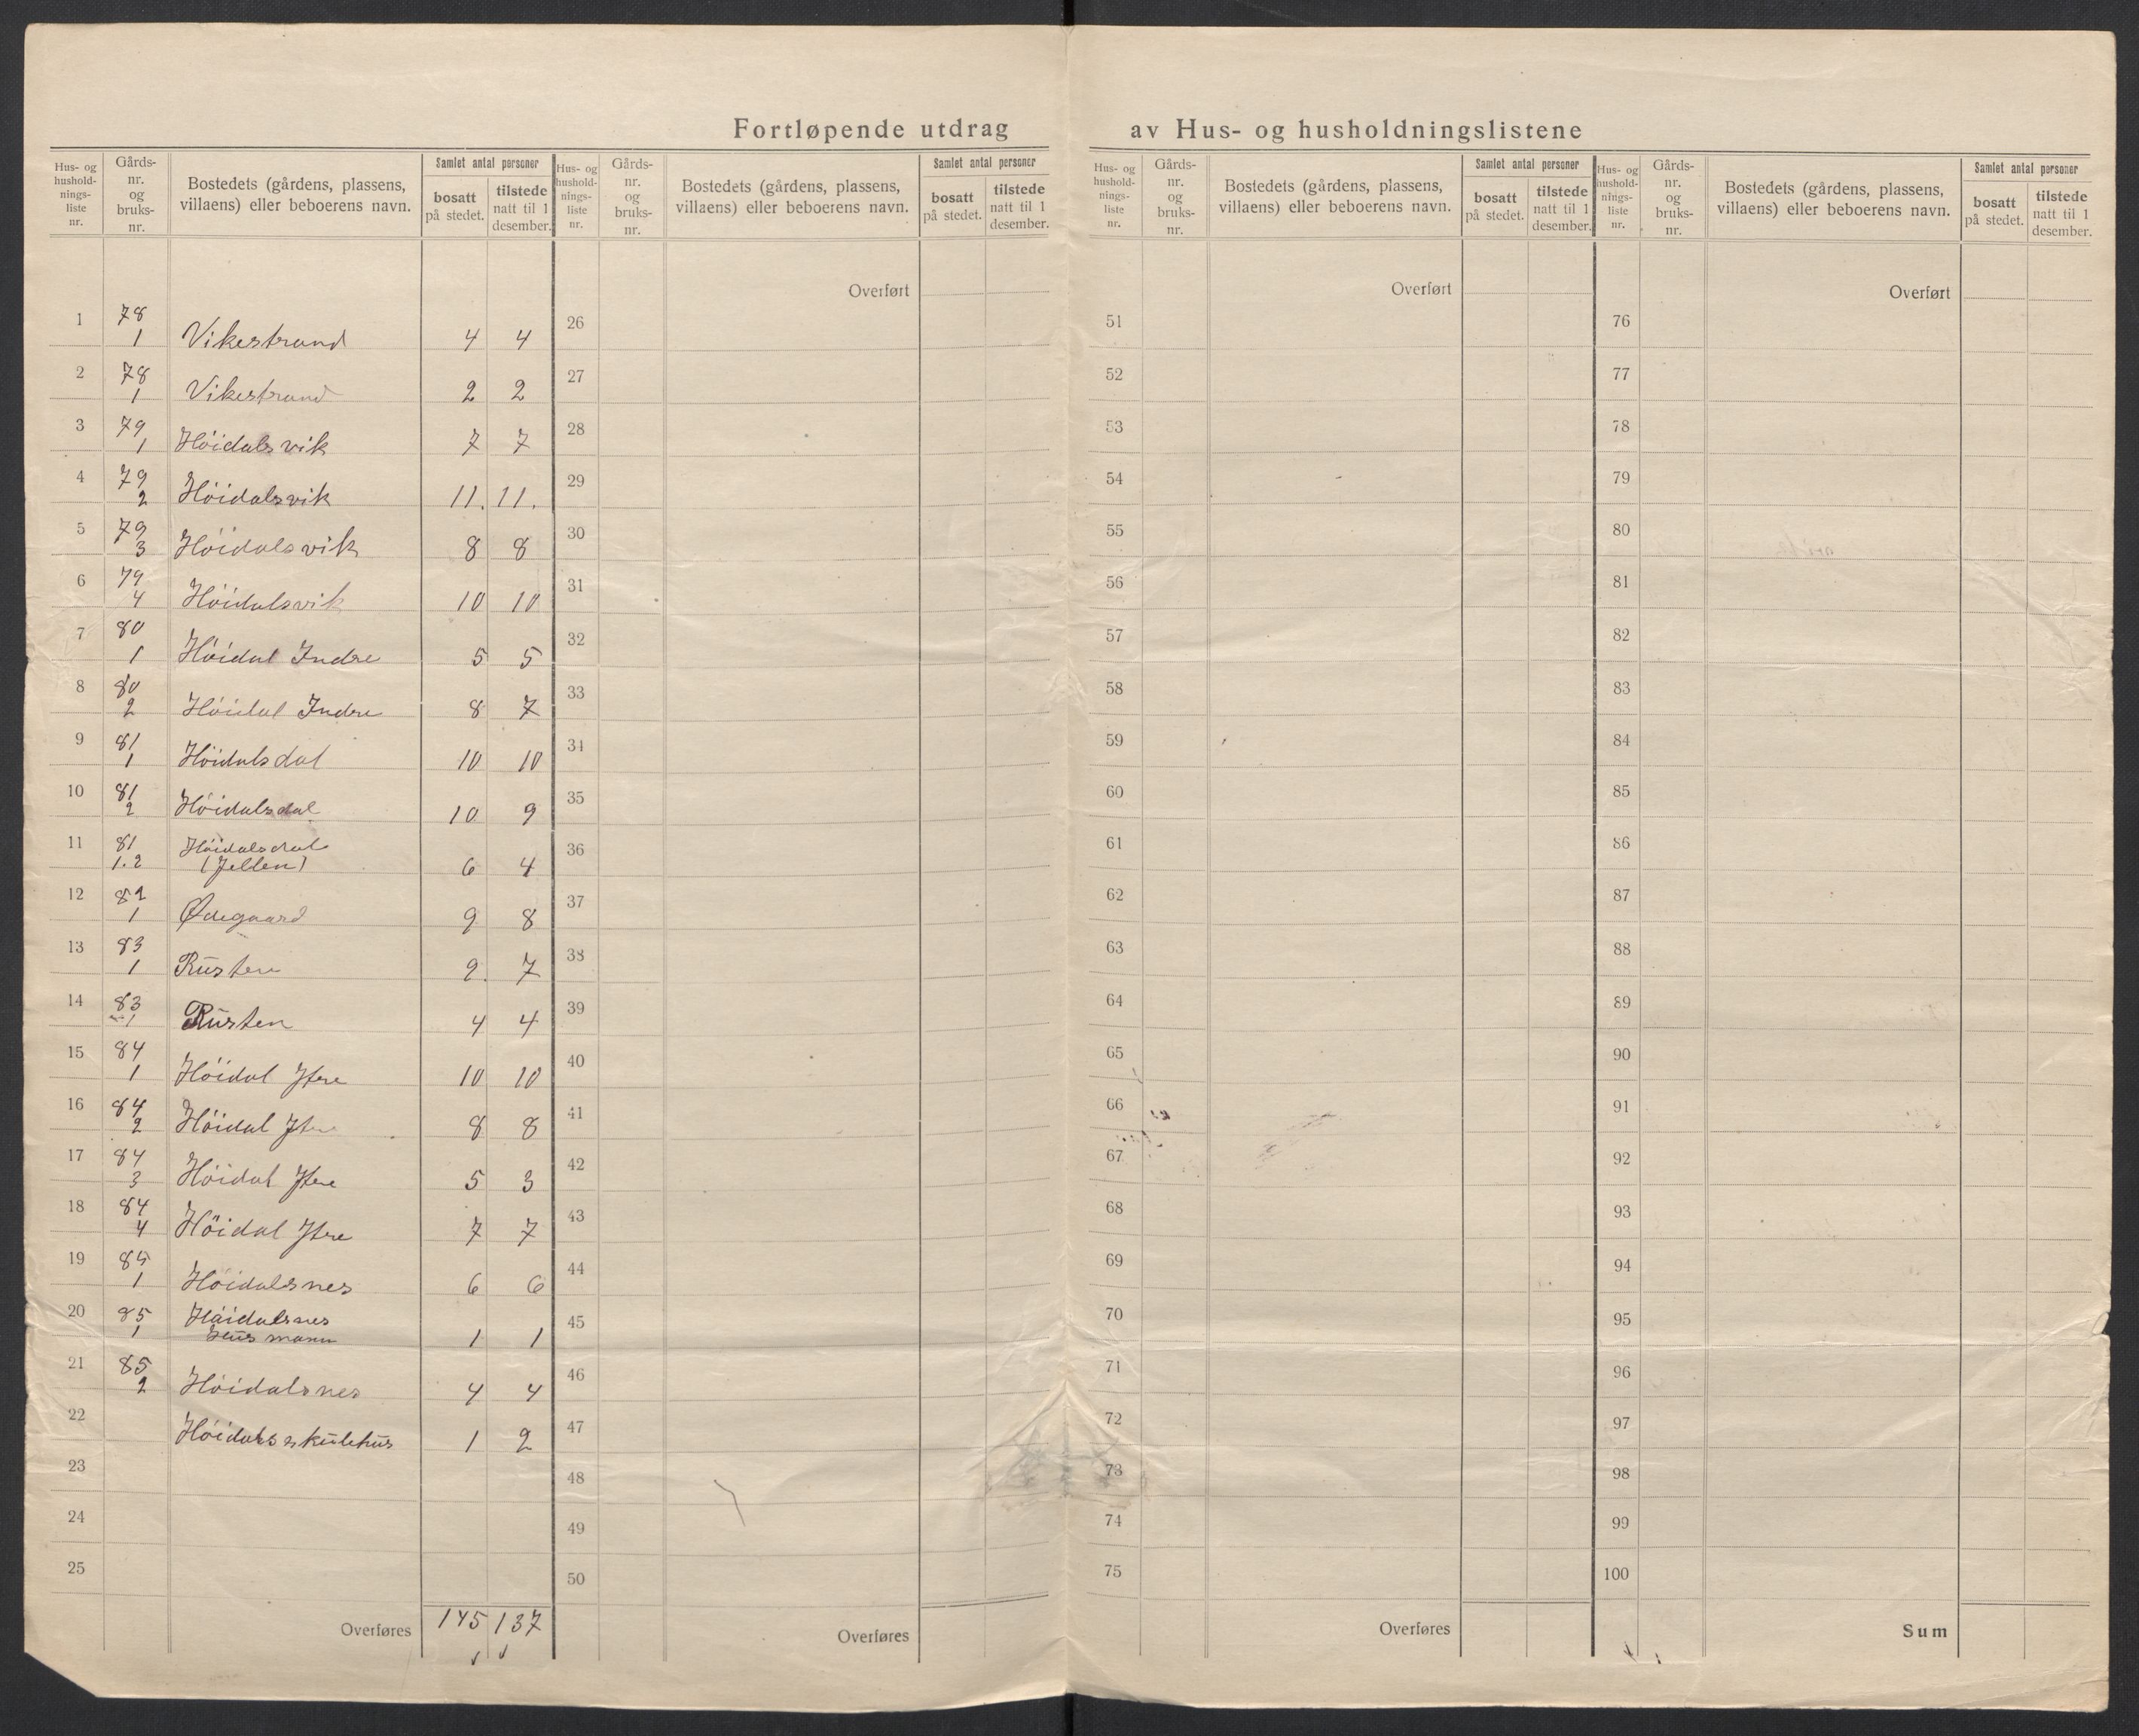 Fortløpende utdrag av Hus- og husholdningslistene
Hus- og husholdnings-liste nr. Gårds-nr. og bruks-nr. Bostedets (gårdens, plassens, villaens) eller beboerens navn. Samlet antal personer bosatt på stedet. tilstede natt til 1 desember.
Hus- og husholdnings-liste nr. Gårds-nr. og bruks-nr. Bostedets (gårdens, plassens, villaens) eller beboerens navn. Samlet antal personer bosatt på stedet. tilstede natt til 1 desember.
Hus- og husholdnings-liste nr. Gårds-nr. og bruks-nr. Bostedets (gårdens, plassens, villaens) eller beboerens navn. Samlet antal personer bosatt på stedet. tilstede natt til 1 desember.
Hus- og husholdnings-liste nr. Gårds-nr. og bruks-nr. Bostedets (gårdens, plassens, villaens) eller beboerens navn. Samlet antal personer bosatt på stedet. tilstede natt til 1 desember.
1 78 1 Vikestrand 4 4
2 78 1 Vikestrand 2 2
3 79 1 Höidalsvik 7 7
4 79 2 Höidalsvik 11. 11.
5 79 3 Höidalsvik 8 8
6 79 4 Höidalsvik 10 10
7 80 1 Höidal Indre 5 5
8 80 2 Höidal Indre 8 7
9 81 1 Höidalsdal 10 10
10 81 2 Höidalsdal 10 9
11 81 1.2 Höidalsdal
6 4
12 82 1 Ødegaard 9 8
13 83 1 Rusten 9. 7
14 83 1 Rusten 4 4
15 84 1 Höidal Ytre 10 10
16 84 2 Höidal Ytre 8 8
17 84 3 Höidal Ytre 5 3
18 84 4 Höidal Ytre 7 7
19 85 1 Höidalsnes 6 6
20 85 1 Höidalsnes
Husmann 1 1
21 85 2 Höidalsnes 4 4
22 Höidals skulehus 1 2
23
24
25
Overføres 145 137
Overført
26
27
28
29
30
31
32
33
34
35
36
37
38
39
40
41
42
43
44
45
46
47
48
49
50
Overføres
Overført
51
52
53
54
55
56
57
58
59
60
61
62
63
64
65
66
67
68
69
70
71
72
73
74
75
Overføres
Overført
76
77
78
79
80
81
82
83
84
85
86
87
88
89
90
91
92
93
94
95
96
97
98
99
100
Sum